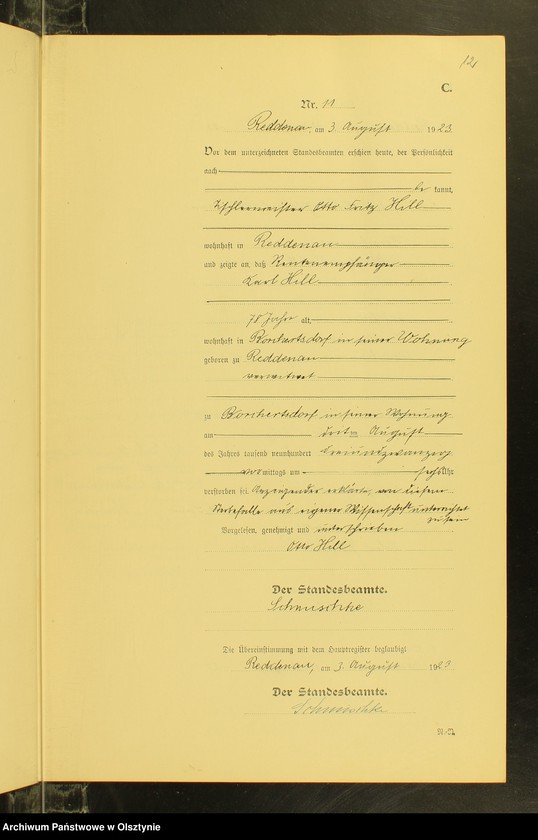 121
C.
Nr. 11
Reddenau, am 3. August 1923
Vor dem unterzeichneten Standesbeamten erschien heute, der Persönlichkeit
nach
be kannt,
Tischlermeister Otto Fritz Hill
wohnhaft in Reddenau
und zeigte an, daß Rentenempfänger
Karl Hill
78 Jahre alt,
wohnhaft in Borchertsdorf in seiner Wohnung
geboren zu Reddenau
verwitwet
zu Borchertsdorf in seiner Wohnung
am dritten August
des Jahres tausend neunhundert dreiundzwanzig
vormittags um sechs Uhr
verstorben sei. Anzeigender erklärte, von diesem
Sterbefalle aus eigener Wissenschaft unterrichtet
zu sein
Vorgelesen, genehmigt und unterschrieben
Otto Hill
Der Standesbeamte.
Schmischke
Die Übereinstimmung mit dem Hauptregister beglaubigt
Reddenau, am 3. August 1923
Der Standesbeamte.
Schmischke
Archiwum Państwowe w Olsztynie